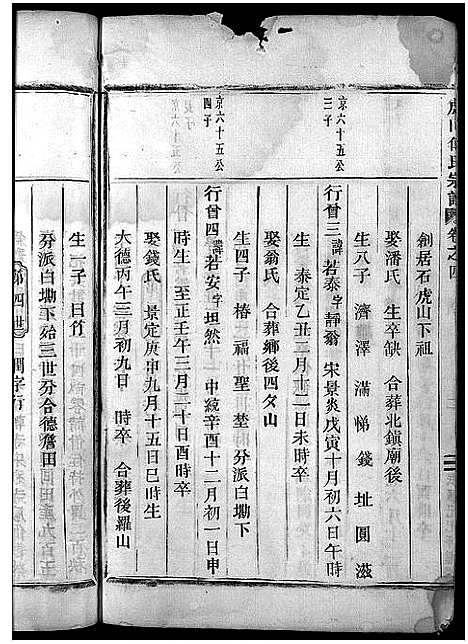 氏宗譜 卷之四
創居石虎山下祖
娶潘氏 生卒缺 合葬北鎮廟後
生八子 濟 澤 滿 悌 錢 址 圓 滋
京六十五公三子
行曾三 諱若泰 字靜翁 宋景炎戊寅十月初六日午時
生 泰定乙丑二月十二日未時卒
娶翁氏 合葬鄉後四畝山
生四子 椿 福 聖 埜 分派白墈下
京六十五公四子
行曾四 諱若安 字坦然 中統辛酉十二月初一日申
時生 至正壬午三月二十日酉時卒
娶錢氏 景定庚申九月十五日巳時生
大德丙午三月初九日 時卒 合葬後羅山
生一子 曰竹
分派白墈下始三世分合德詹田
第四世